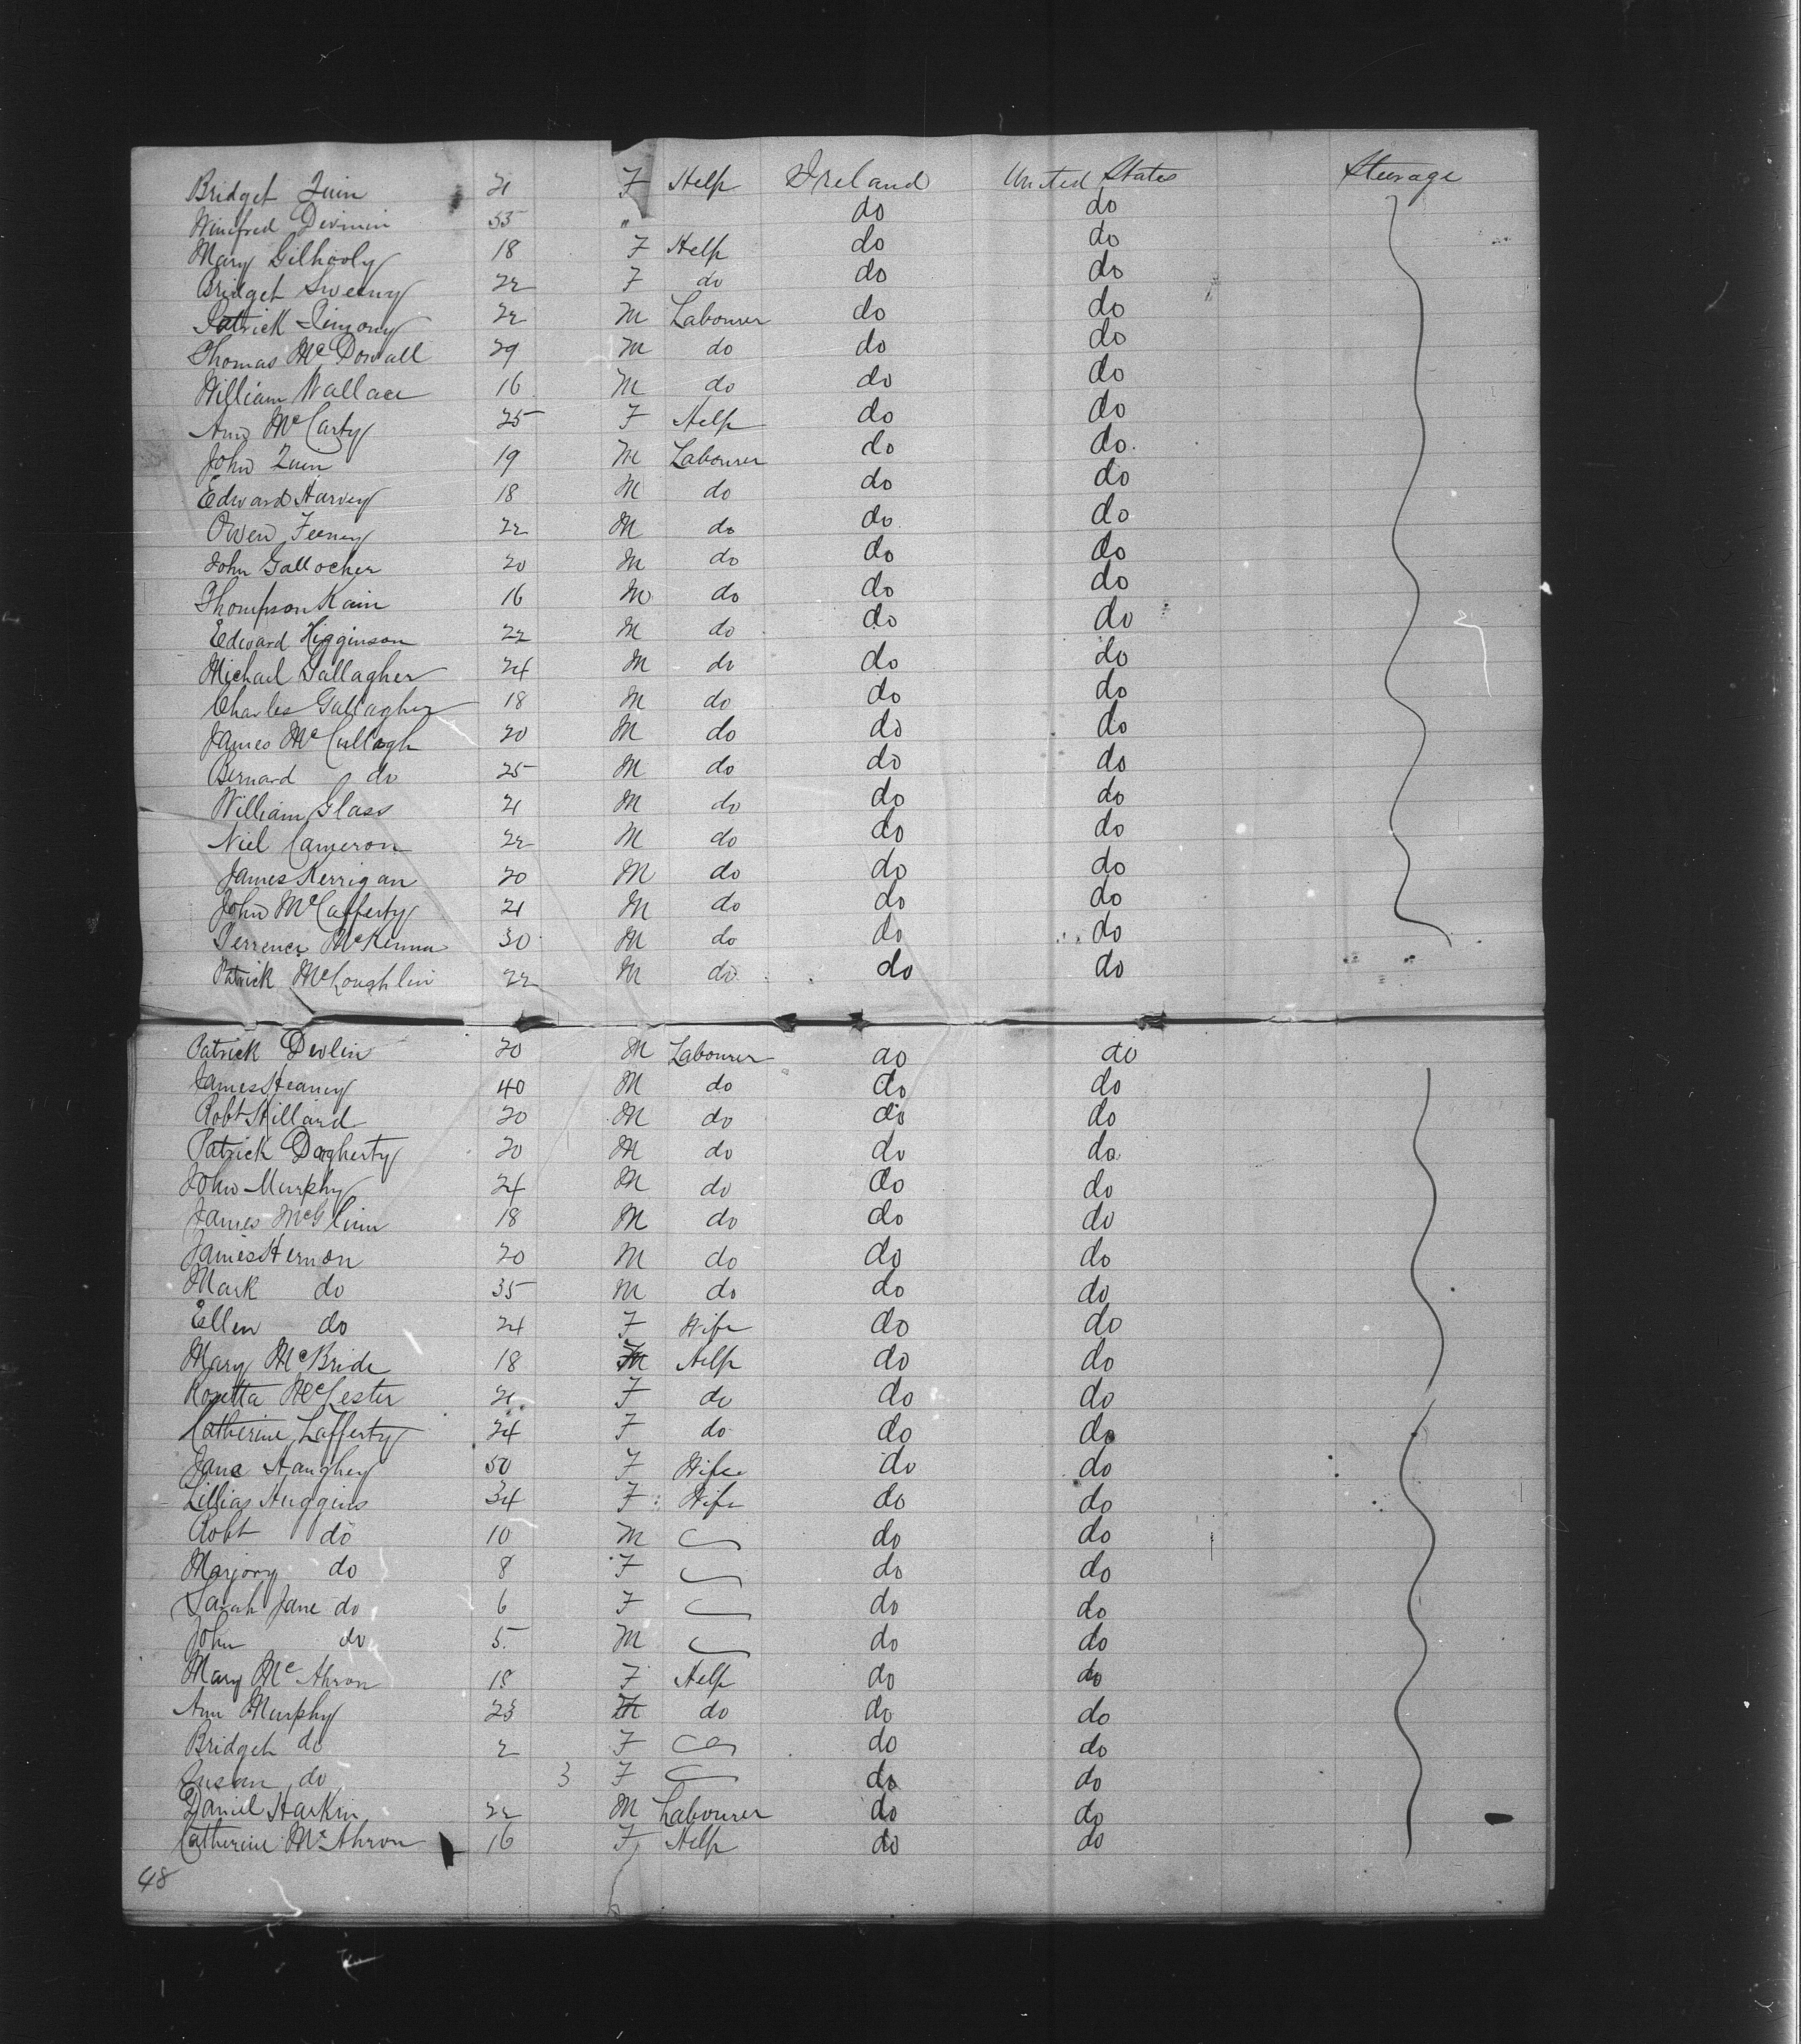 Bridget Quin 21 F Help Ireland United States Steerage
Winifred Devinin 55 " do do
Mary Gilhooly 18 F Help do do
Bridget Sweeny 22 F do do do
Patrick Dimony 22 M Labourer do do
Thomas McDowall 29 M do do do
William Wallace 16 M do do do
Ann McCarty 25 F Help do do
John Quin 19 M Labourer do do
Edward Harvey 18 M do do do
Owen Feeney 22 M do do do
John Gallocher 20 M do do do
Thompson Kain 16 M do do do
Edward Higginson 22 M do do do
Michael Gallagher 24 M do do do
Charles Gallagher 18 M do do do
James McCullogh 20 M do do do
Bernard do 25 M do do do
William Glass 21 M do do do
Niel Cameron 22 M do do do
James Kerrigan 20 M do do do
John McCafferty 21 M do do do
Terrence McKenna 30 M do do do
Patrick McLoughlin 22 M do do do
Patrick Devlin 20 M Labourer do do
James Heaney 40 M do do do
Robt Hilland 20 M do do do
Patrick Dogherty 20 M do do do
John Murphy 24 M do do do
James McGlinn 18 M do do do
James Hernon 20 M do do do
Mark do 35 M do do do
Ellen do 24 F Wife do do
Mary McBride 18 F Help do do
Rosetta McLester 21 F do do do
Catherine Lafferty 24 F do do do
Jane Haughey 50 F Wife do do
Lillias Huggins 34 F Wife do do
Robt do 10 M do do
Marjory do 8 F do do
Sarah Jane do 6 F do do
John do 5 M do do
Mary McAhron 18 F Help do do
Ann Murphy 23 F do do do
Bridget do 2 F do do
Susan do 3 F do do
Daniel Harkin 22 M Labourer do do
Catherine McAhron 16 F Help do do
48